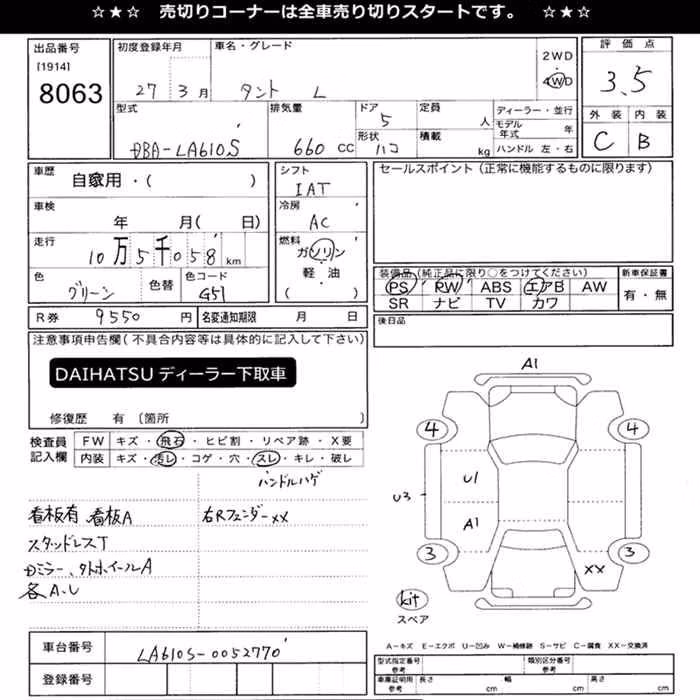 ☆★☆ 売切りコーナーは全車売り切りスタートです。 ☆★☆
出品番号
[1914]
8063
初度登録年月
27 3月
車名・グレード
タント L
2WD
・
4WD
評価点
3.5
外装 内装
C B
型式
DBA-LA610S
排気量
660 CC
ドア
5
形状
ハコ
定員
人
積載
kg
ディーラー・並行
モデル年式 年
ハンドル 左・右
車歴
自家用・( )
車検
年 月( 日)
走行
10万5千058km
色
グリーン
色替
色コード
G51
シフト
IAT
冷房
AC
燃料
ガソリン
・
軽油
( )
セールスポイント(正常に機能するものに限ります)
装備品(純正品に限り○をつけてください)
PS PW ABS エアB AW
SR ナビ TV カワ
新車保証書
有・無
後日品
R券 9550 円
名変通知期限 月 日
注意事項申告欄(不具合内容等は具体的に記入して下さい)
DAIHATSU ディーラー下取車
修復歴 有 〔箇所
検査員記入欄
FW キズ・飛石・ヒビ割・リペア跡・X要
内装 キズ・汚レ・コゲ・穴・スレ・キレ・破レ
ハンドルハゲ
看板有 看板A
右Rフェンダー××
スタッドレスT
Dミラー、タトホイールA
各A.U
A1
4 4
U1
U3
A1
3 3
××
kit
スペア
A-キズ E-エクボ U-凹み W-補修跡 S-サビ C-腐食 XX-交換済
車台番号
LA610S-0052770
登録番号
型式指定番号
参考
類別区分番号
参考
車庫証明用
参考
長さ cm
幅 cm
高さ cm